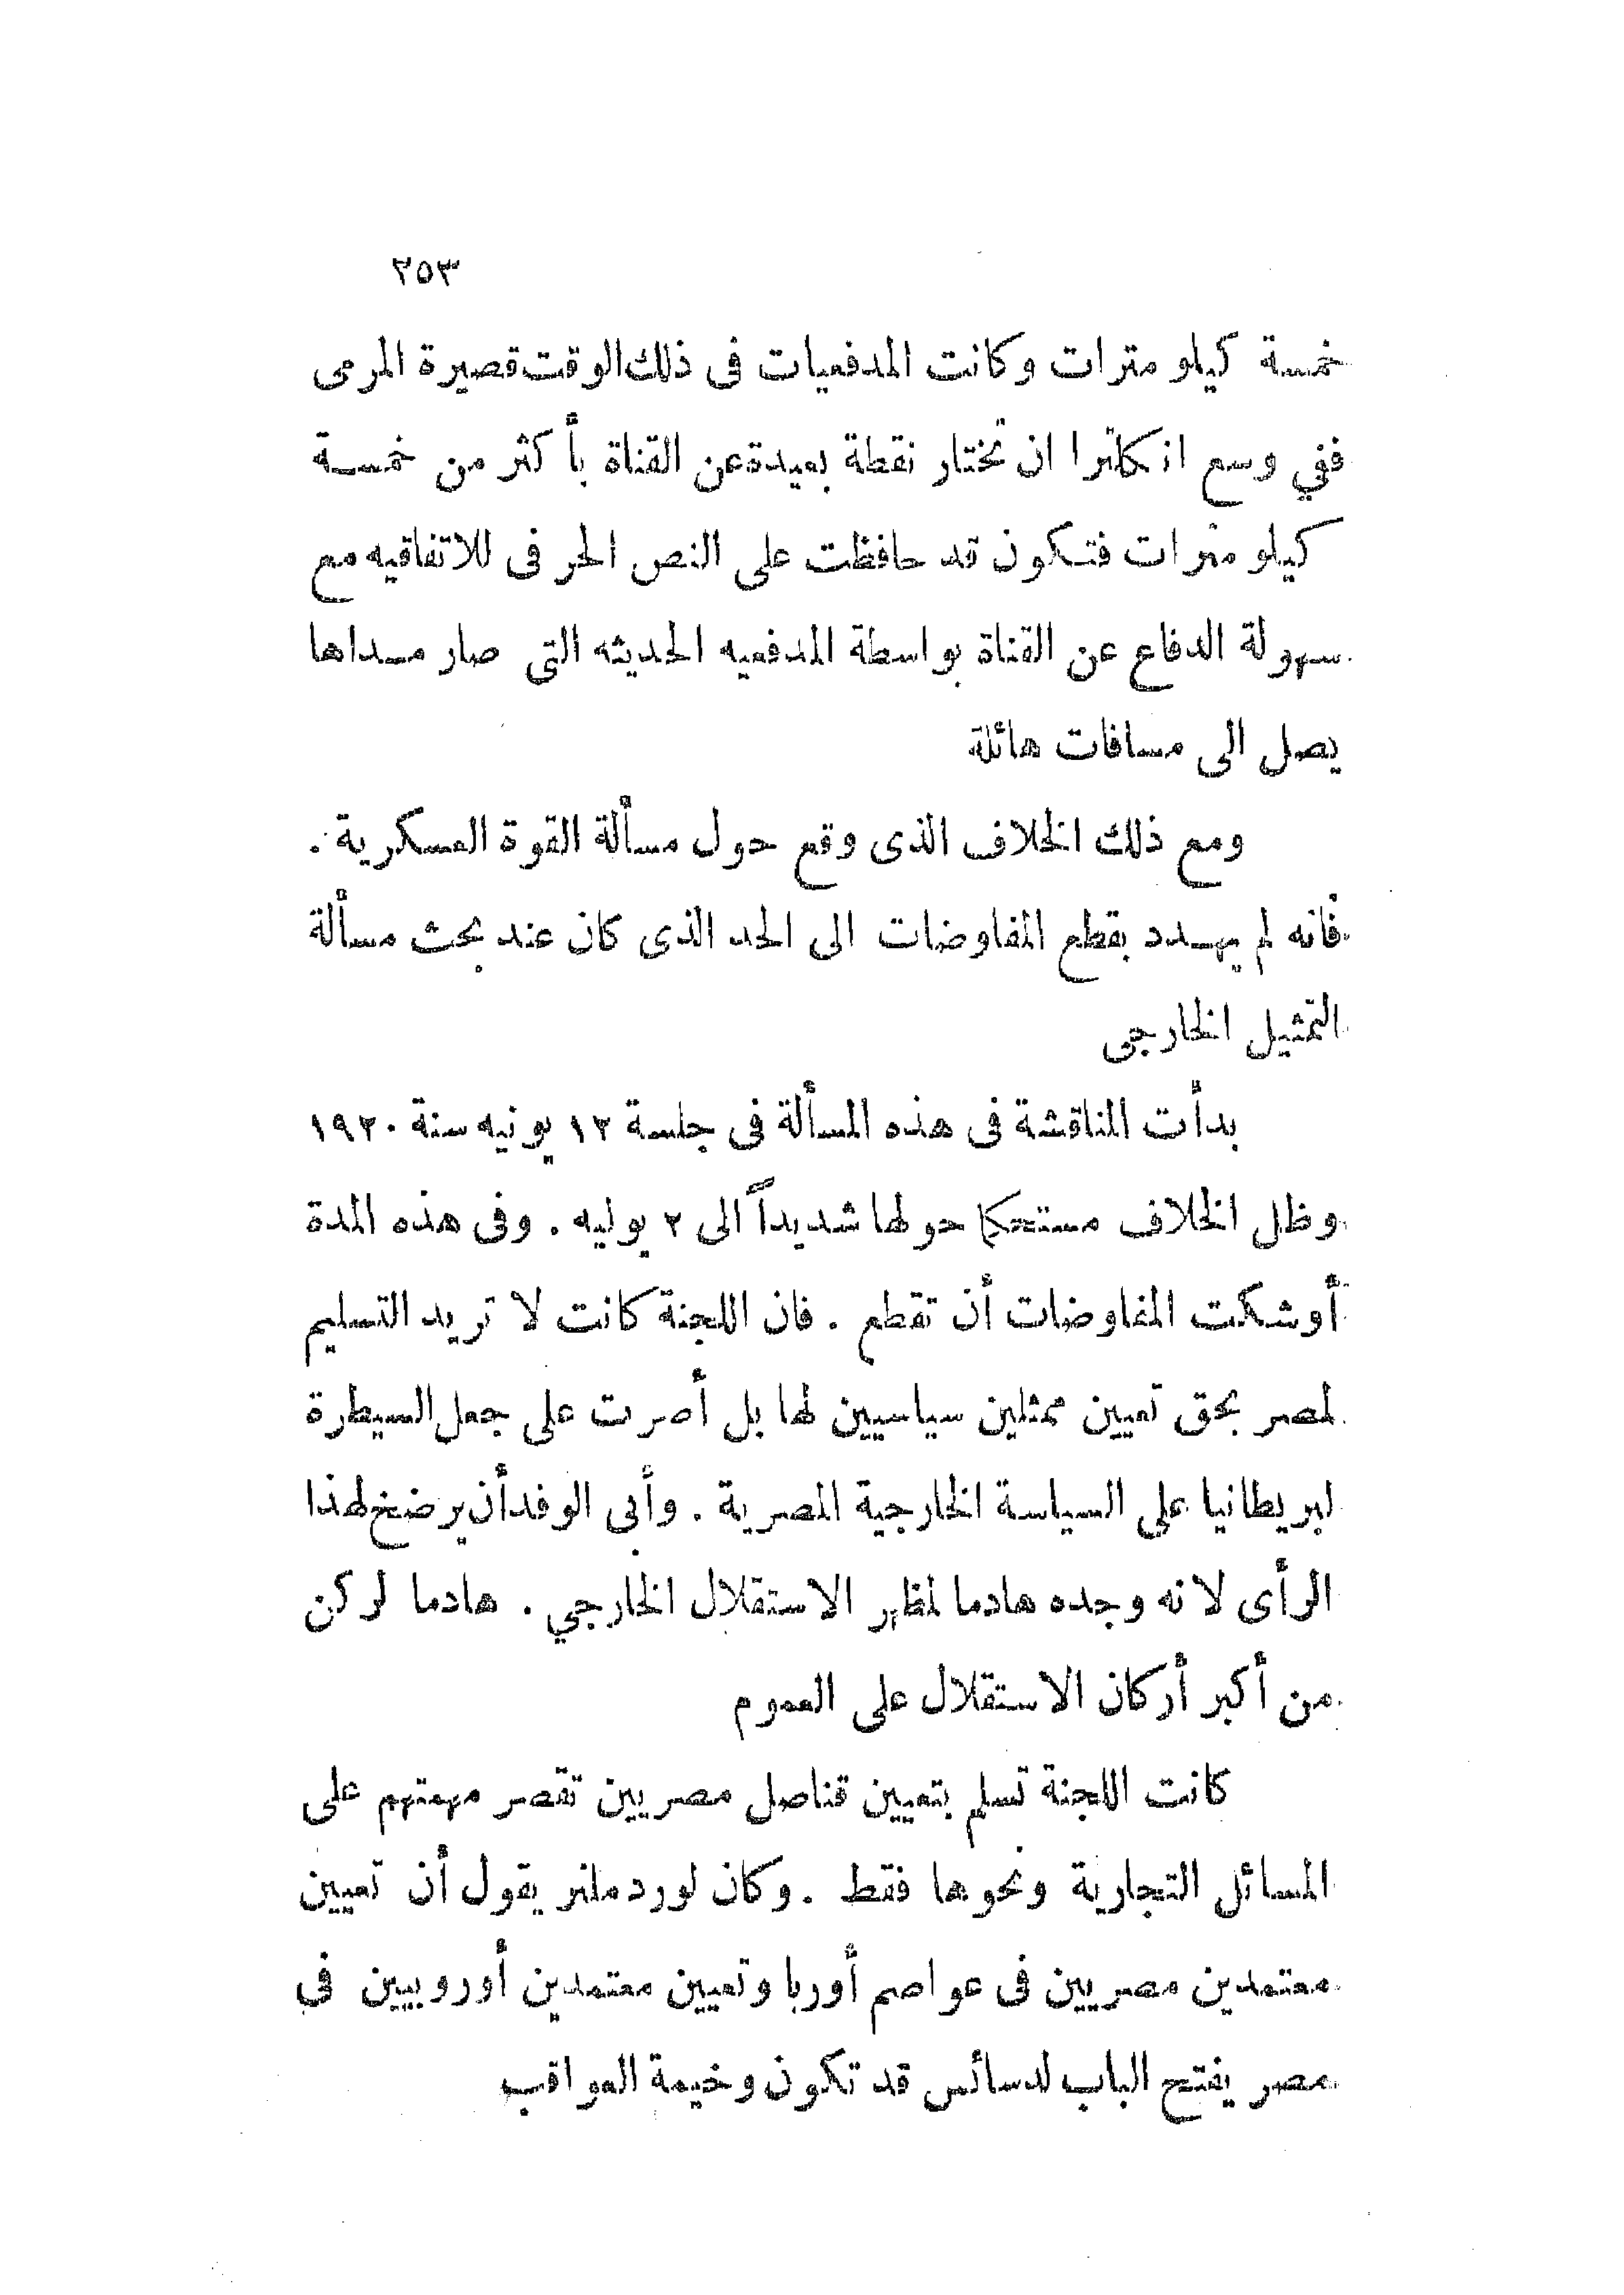 ٢٥٣
خمسة كيلو مترات وكانت المدفعيات فى ذلك الوقت قصيرة المرمى
ففي وسع انكلترا ان تختار نقطة بعيدة عن القناة بأكثر من خمسة
كيلو مترات فتكون قد حافظت على النص الحرفى للاتفاقيه مع
سهولة الدفاع عن القناة بواسطة المدفعيه الحديثه التى صار مداها
يصل الى مسافات هائلة
ومع ذلك الخلاف الذى وقع حول مسألة القوة العسكرية .
فانه لم يهدد بقطع المفاوضات الى الحد الذى كان عند بحث مسألة
التمثيل الخارجى
بدأت المناقشة فى هذه المسألة فى جلسة ١٢ يونيه سنة ١٩٢٠
وظل الخلاف مستحكما حولها شديداً الى ٢ يوليه . وفى هذه المدة
أوشكت المفاوضات أن تقطع . فان اللجنة كانت لا تريد التسليم
لمصر بحق تعيين ممثلين سياسيين لها بل أصرت على جعل السيطرة
لبريطانيا على السياسة الخارجية المصرية . وأبى الوفد أن يرضخ لهذا
الرأى لانه وجده هادما لمظهر الاستقلال الخارجي . هادما لركن
من أكبر أركان الاستقلال على العموم
كانت اللجنة تسلم بتعيين قناصل مصريين تقصر مهمتهم على
المسائل التجارية ونحوها فقط . وكان لورد ملنر يقول أن تعيين
معتمدين مصريين فى عواصم أوربا وتعيين معتمدين أوروبيين في
مصر يفتح الباب لدسائس قد تكون وخيمة العواقب